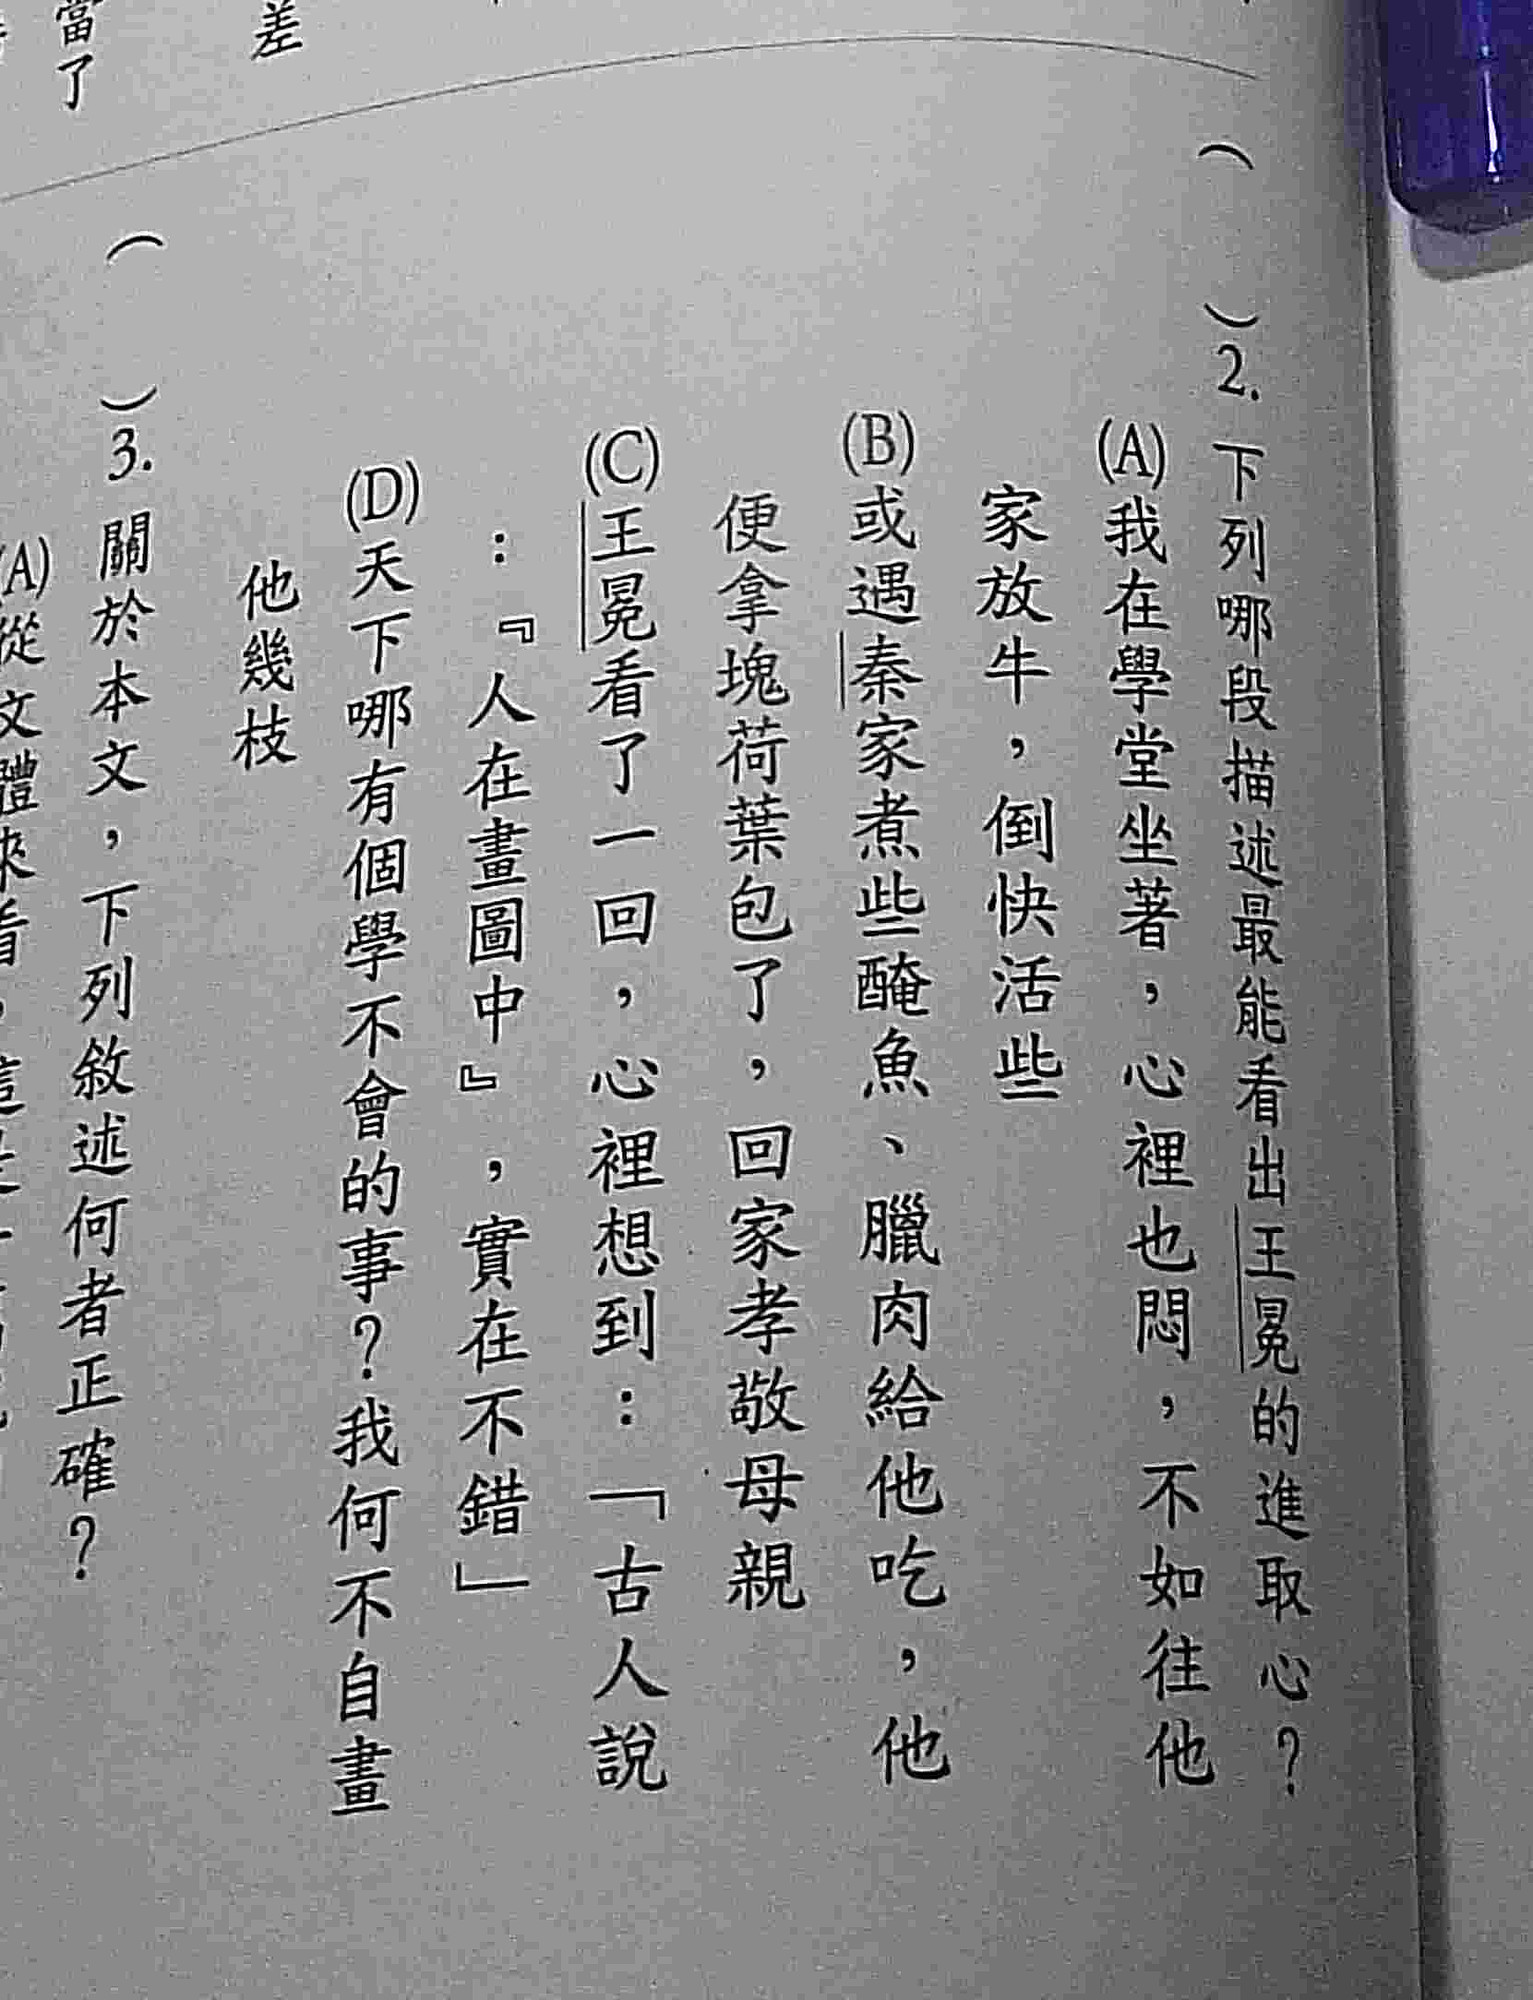 (　)2.下列哪段描述最能看出王冕的進取心？
(A)我在學堂坐著，心裡也悶，不如往他
家放牛，倒快活些
(B)或遇秦家煮些醃魚、臘肉給他吃，他
便拿塊荷葉包了，回家孝敬母親
(C)王冕看了一回，心裡想到：「古人說
：『人在畫圖中』，實在不錯」
(D)天下哪有個學不會的事？我何不自畫
他幾枝
(　)3.關於本文，下列敘述何者正確？
(A)從文體來看，這是
差
當了